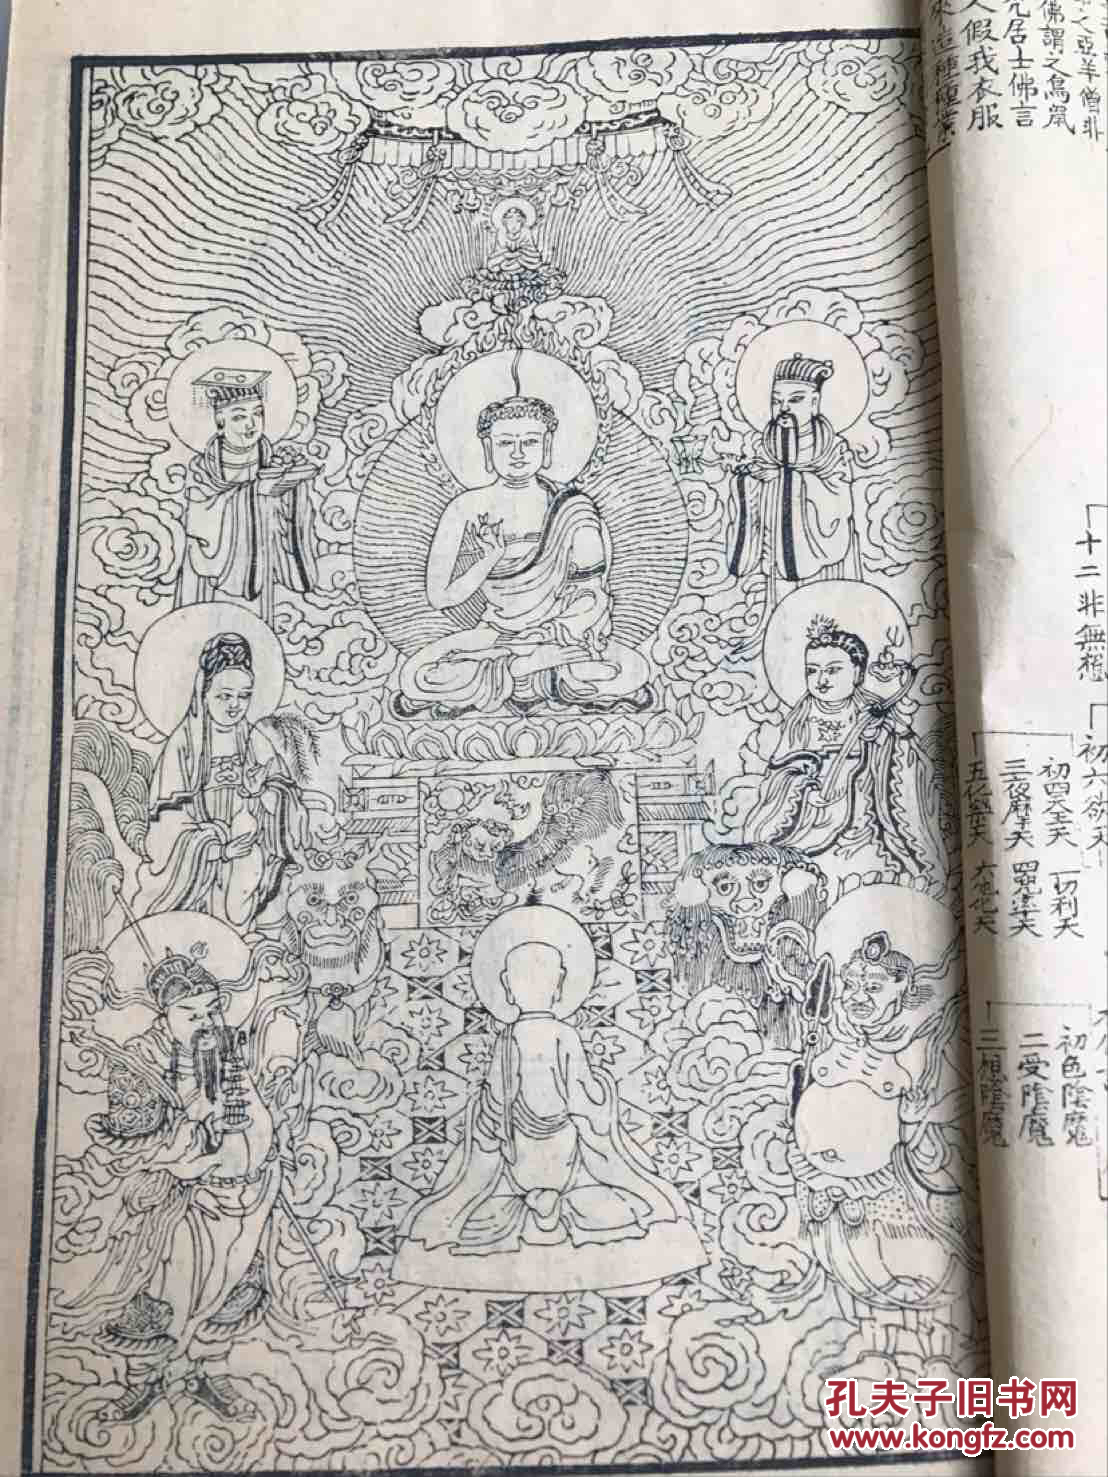 佛謂之爲鼠
居士佛言
人假我衣服
來造種種業
十二非無想
初六欲天
初四天王天
一切利天
三夜摩天
四兜率天
五化樂天
六他化天
初色陰魔
二受陰魔
三想陰魔
孔夫子旧书网
www.kongfz.com